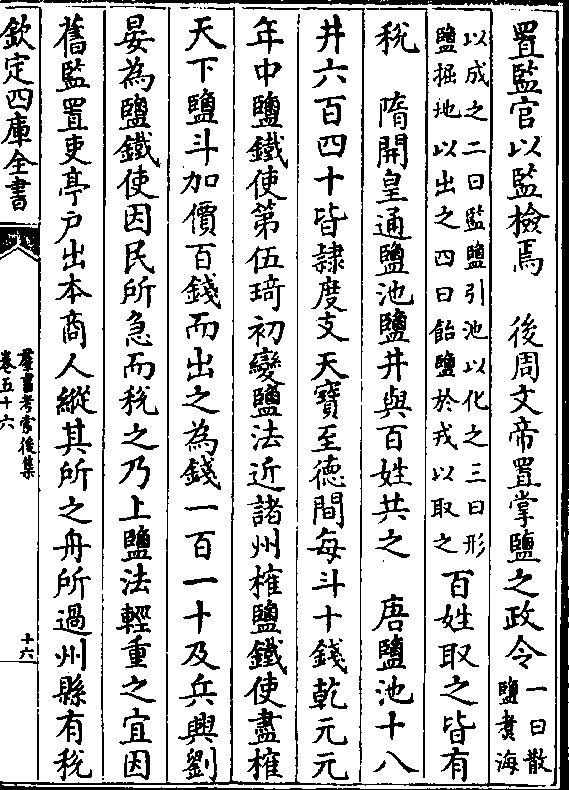 置監官以監檢焉　後周文帝置掌鹽之政令一曰散鹽煑海
以成之二曰監鹽引池以化之三曰形鹽掘地以出之四曰飴鹽於戎以取之百姓取之皆有
税　隋開皇通鹽池鹽井與百姓共之　唐鹽池十八
井六百四十皆隷度支天寶至德間每斗十錢乾元元
年中鹽鐵使第伍琦初變鹽法近諸州榷鹽鐵使盡榷
天下鹽斗加價百錢而出之為錢一百一十及兵興劉
晏為鹽鐵使因民所急而税之乃上鹽法輕重之宜因
舊監置吏亭户出本商人縱其所之舟所過州縣有税
欽定四庫全書
羣書考索後集
卷五十六
十六